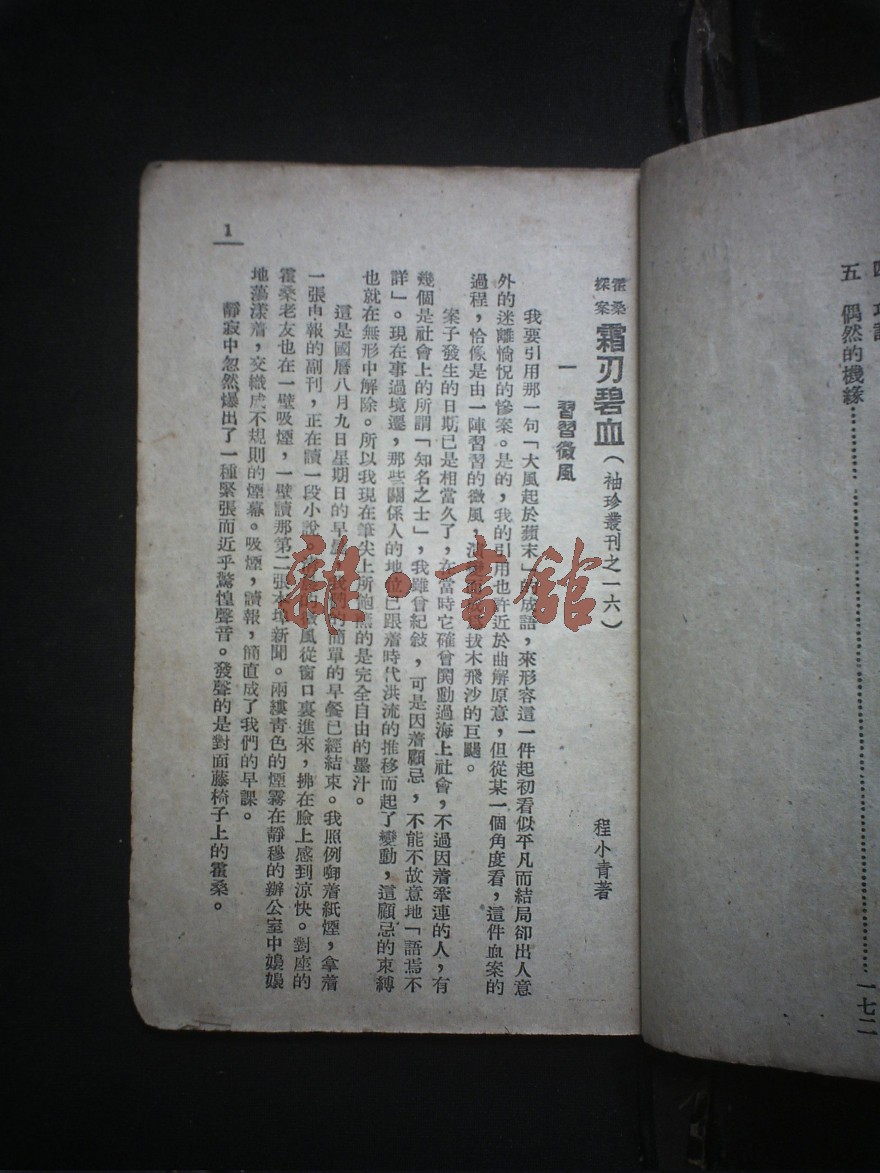 五 偶然的機緣……………………一七二
霍桑探案 霜刃碧血(袖珍叢刊之一六) 程小青著
一 習習微風
我要引用那一句「大風起於蘋末」的成語,來形容這一件起初看似平凡而結局卻出人意
外的迷離惝怳的慘案。是的,我的引用也許近於曲解原意,但從某一個角度看,這件血案的
過程,恰像是由一陣習習的微風,拔木飛沙的巨颶。
案子發生的日期已是相當久了,在當時它確曾鬨動過海上社會,不過因着牽連的人,有
幾個是社會上的所謂「知名之士」,我雖曾紀敍,可是因着顧忌,不能不故意地「語焉不
詳」。現在事過境遷,那些關係人的地位已跟着時代洪流的推移而起了變動,這顧忌的束縛
也就在無形中解除。所以我現在筆尖上所飽蘸的是完全自由的墨汁。
這是國曆八月九日星期日的早晨,我們的簡單的早餐已經結束。我照例啣着紙煙,拿着
一張申報的副刊,正在讀一段小說。微風從窗口裏進來,拂在臉上感到涼快。對座的
霍桑老友也在一壁吸煙,一壁讀那第二張本埠新聞。兩縷青色的煙霧在靜穆的辦公室中嬝嬝
地蕩漾着,交織成不規則的煙幕。吸煙,讀報,簡直成了我們的早課。
靜寂中忽然爆出了一種緊張而近乎驚惶聲音。發聲的是對面藤椅子上的霍桑。
1
雜·書館